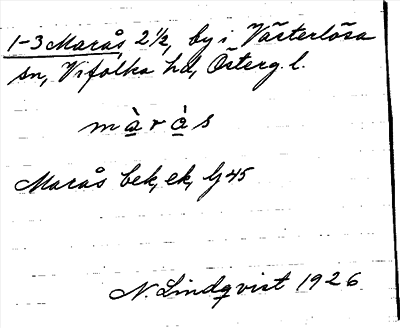 1-3 Marås 2½, by i Västerlösa
sn, Vifolka hd, Österg. l.
màràs
Marås bek, ek, lj 45
N. Lindqvist 1926.